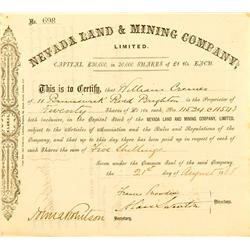 No. 698
NEVADA LAND & MINING COMPANY,
LIMITED.
CAPITAL £80,000, in 20,000 SHARES of £4 0s. EACH.
This is to Certify, that William Cremer
of 11 Brunswick Road Brighton is the Proprietor of
Twenty Shares of £4 0s. each, Nos. 11524 @ 11543
both inclusive, in the Capital Stock of the NEVADA LAND AND MINING COMPANY, LIMITED,
subject to the Articles of Association and the Rules and Regulations of the
Company, and that up to this day there has been paid up in respect of each
Shares the sum of Five Shillings
Given under the Common Seal of the said Company,
the 21st day of August 1868
Directors.
Secretary.